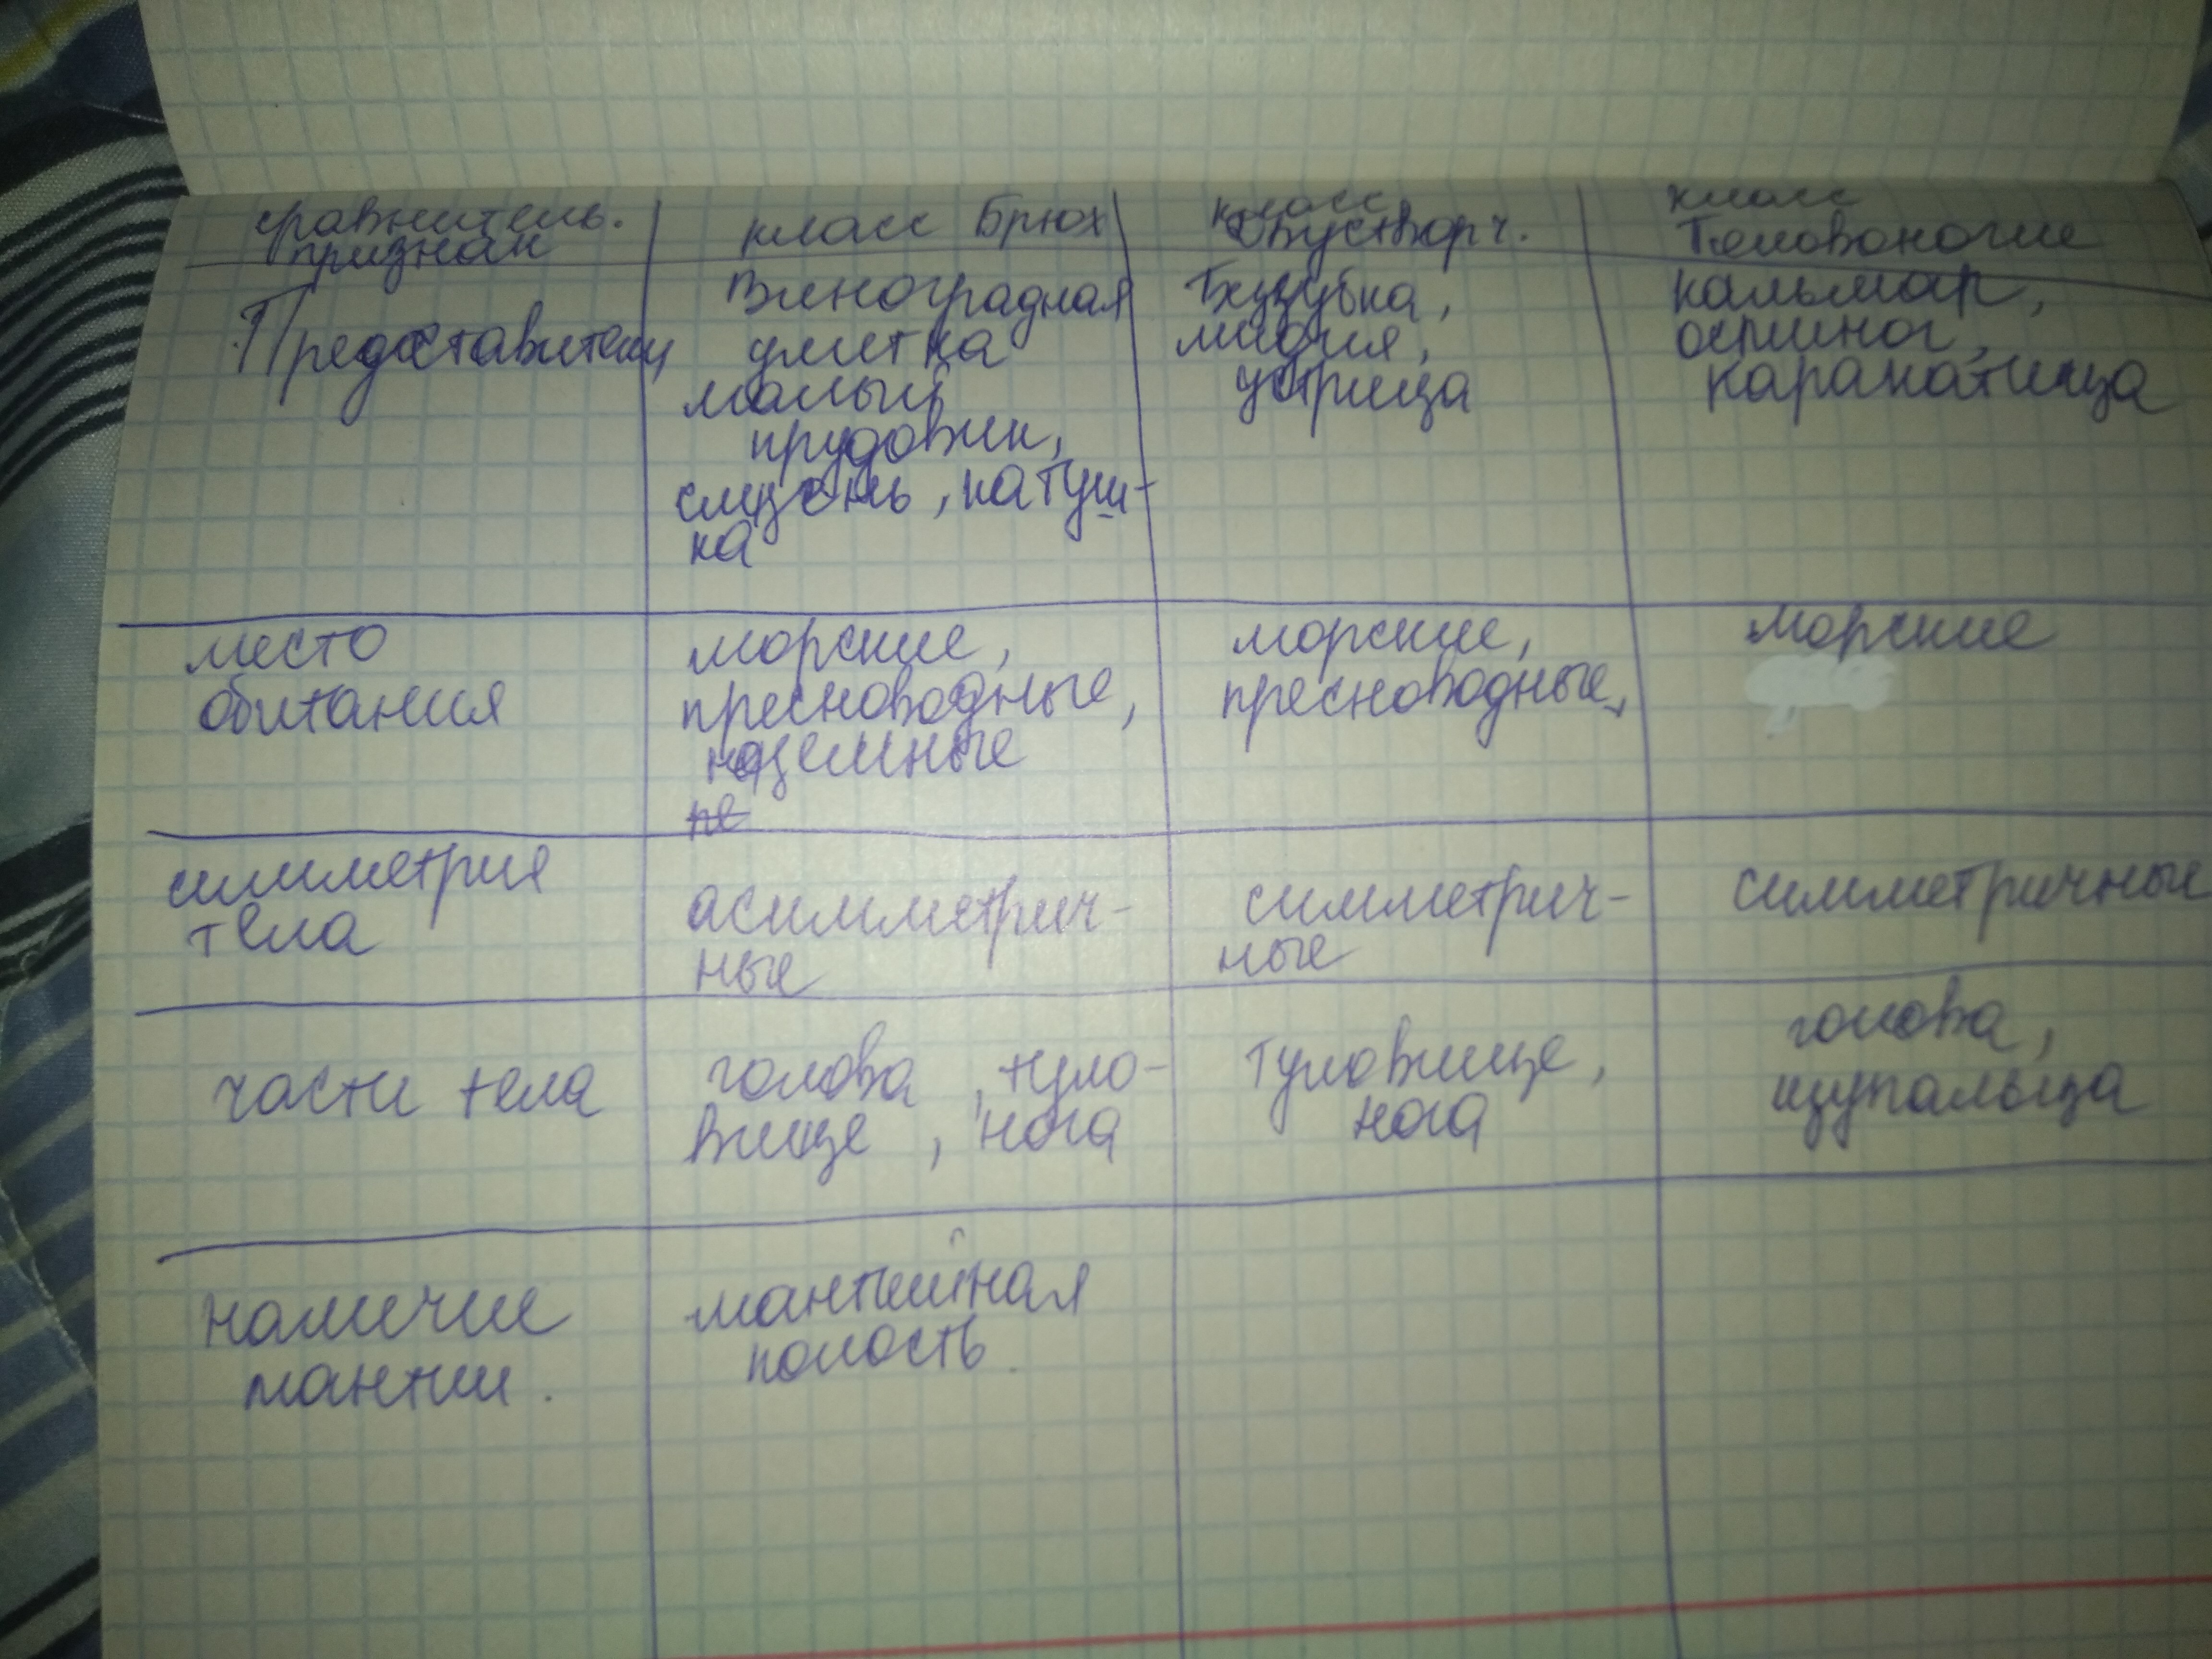 сравнитель.
признак
класс Брюх
класс
Двустворч.
класс
Головоногие
Представители
Виноградная
улитка
малый
прудовик,
слизень, катуш-
ка
Беззубка,
мидия,
устрица
кальмар,
осминог,
каракатица
место
обитания
морские,
пресноводные,
наземные
не
морские,
пресноводные,
морские
симметрия
тела
асимметрич-
ные
симметрич-
ные
симметричные
части тела
голова, туло-
вище, нога
туловище,
нога
голова,
щупальца
наличие
мантии.
мантийная
полость